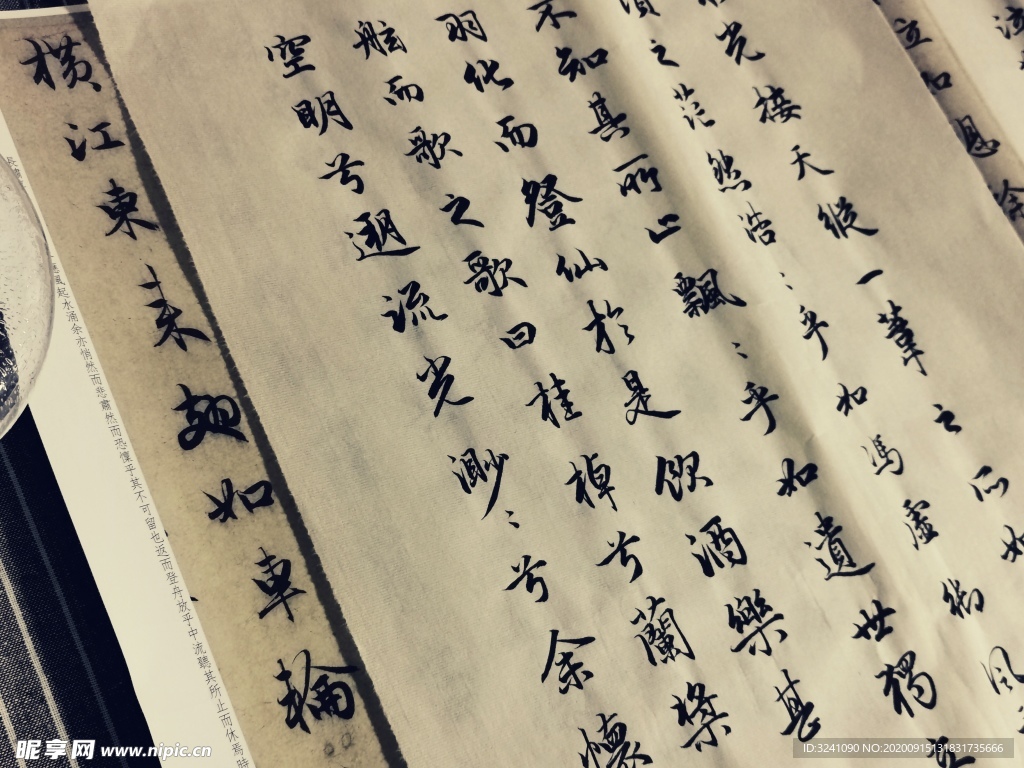 光接天縱一葦之所如
頃之茫然浩〻乎如馮虛御風
不知其所止飄〻乎如遺世獨立
羽化而登仙於是飲酒樂甚
舷而歌之歌曰桂棹兮蘭槳
空明兮遡流光渺〻兮余懷
橫江東來翅如車輪
風起水涌余亦悄然而悲肅然而恐懍乎其不可留也返而登舟放乎中流聽其所止而休焉時
昵享网 www.nipic.cn
ID:3241090 NO:20200915131831735666